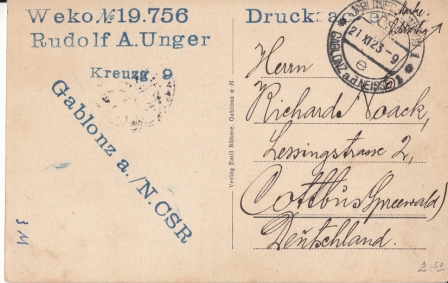 Weko.№19.756
Rudolf A.Unger
Kreuzg. 9
Gablonz a./N. CSR
Drucks
Marke
JABLONEC
21.XI.23-9
GABLONZ a.d. NEISSE
e
Herrn
Richard Noack,
Lessingstrasse 2,
Cottbus (Spreewald)
Deutschland.
Verlag Emil Böhme, Gablonz a N
3 M
2.50